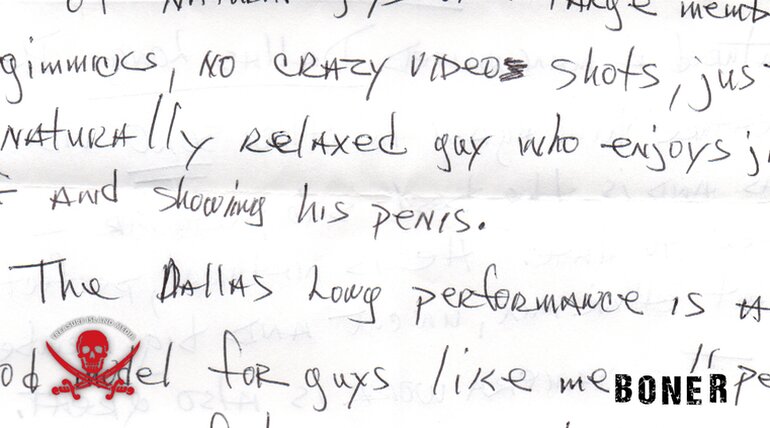 gimmicks, NO CRAZY VIDEO shots, jus
NATURALLY RELAXED guy who enjoys j
AND showing his PENIS.
The DALLAS Long performance is A
od model for guys like me "pe
TREASURE ISLAND MEDIA
BONER